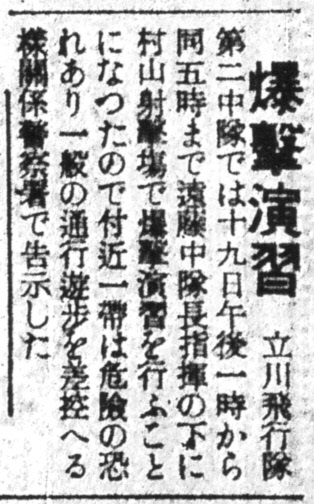 爆撃演習
立川飛行隊
第二中隊では十九日午後一時から
同五時まで遠藤中隊長指揮の下に
村山射撃場で爆撃演習を行ふこと
になつたので付近一帯は危険の恐
れあり一般の通行遊歩を差控へる
様關係警察署で告示した